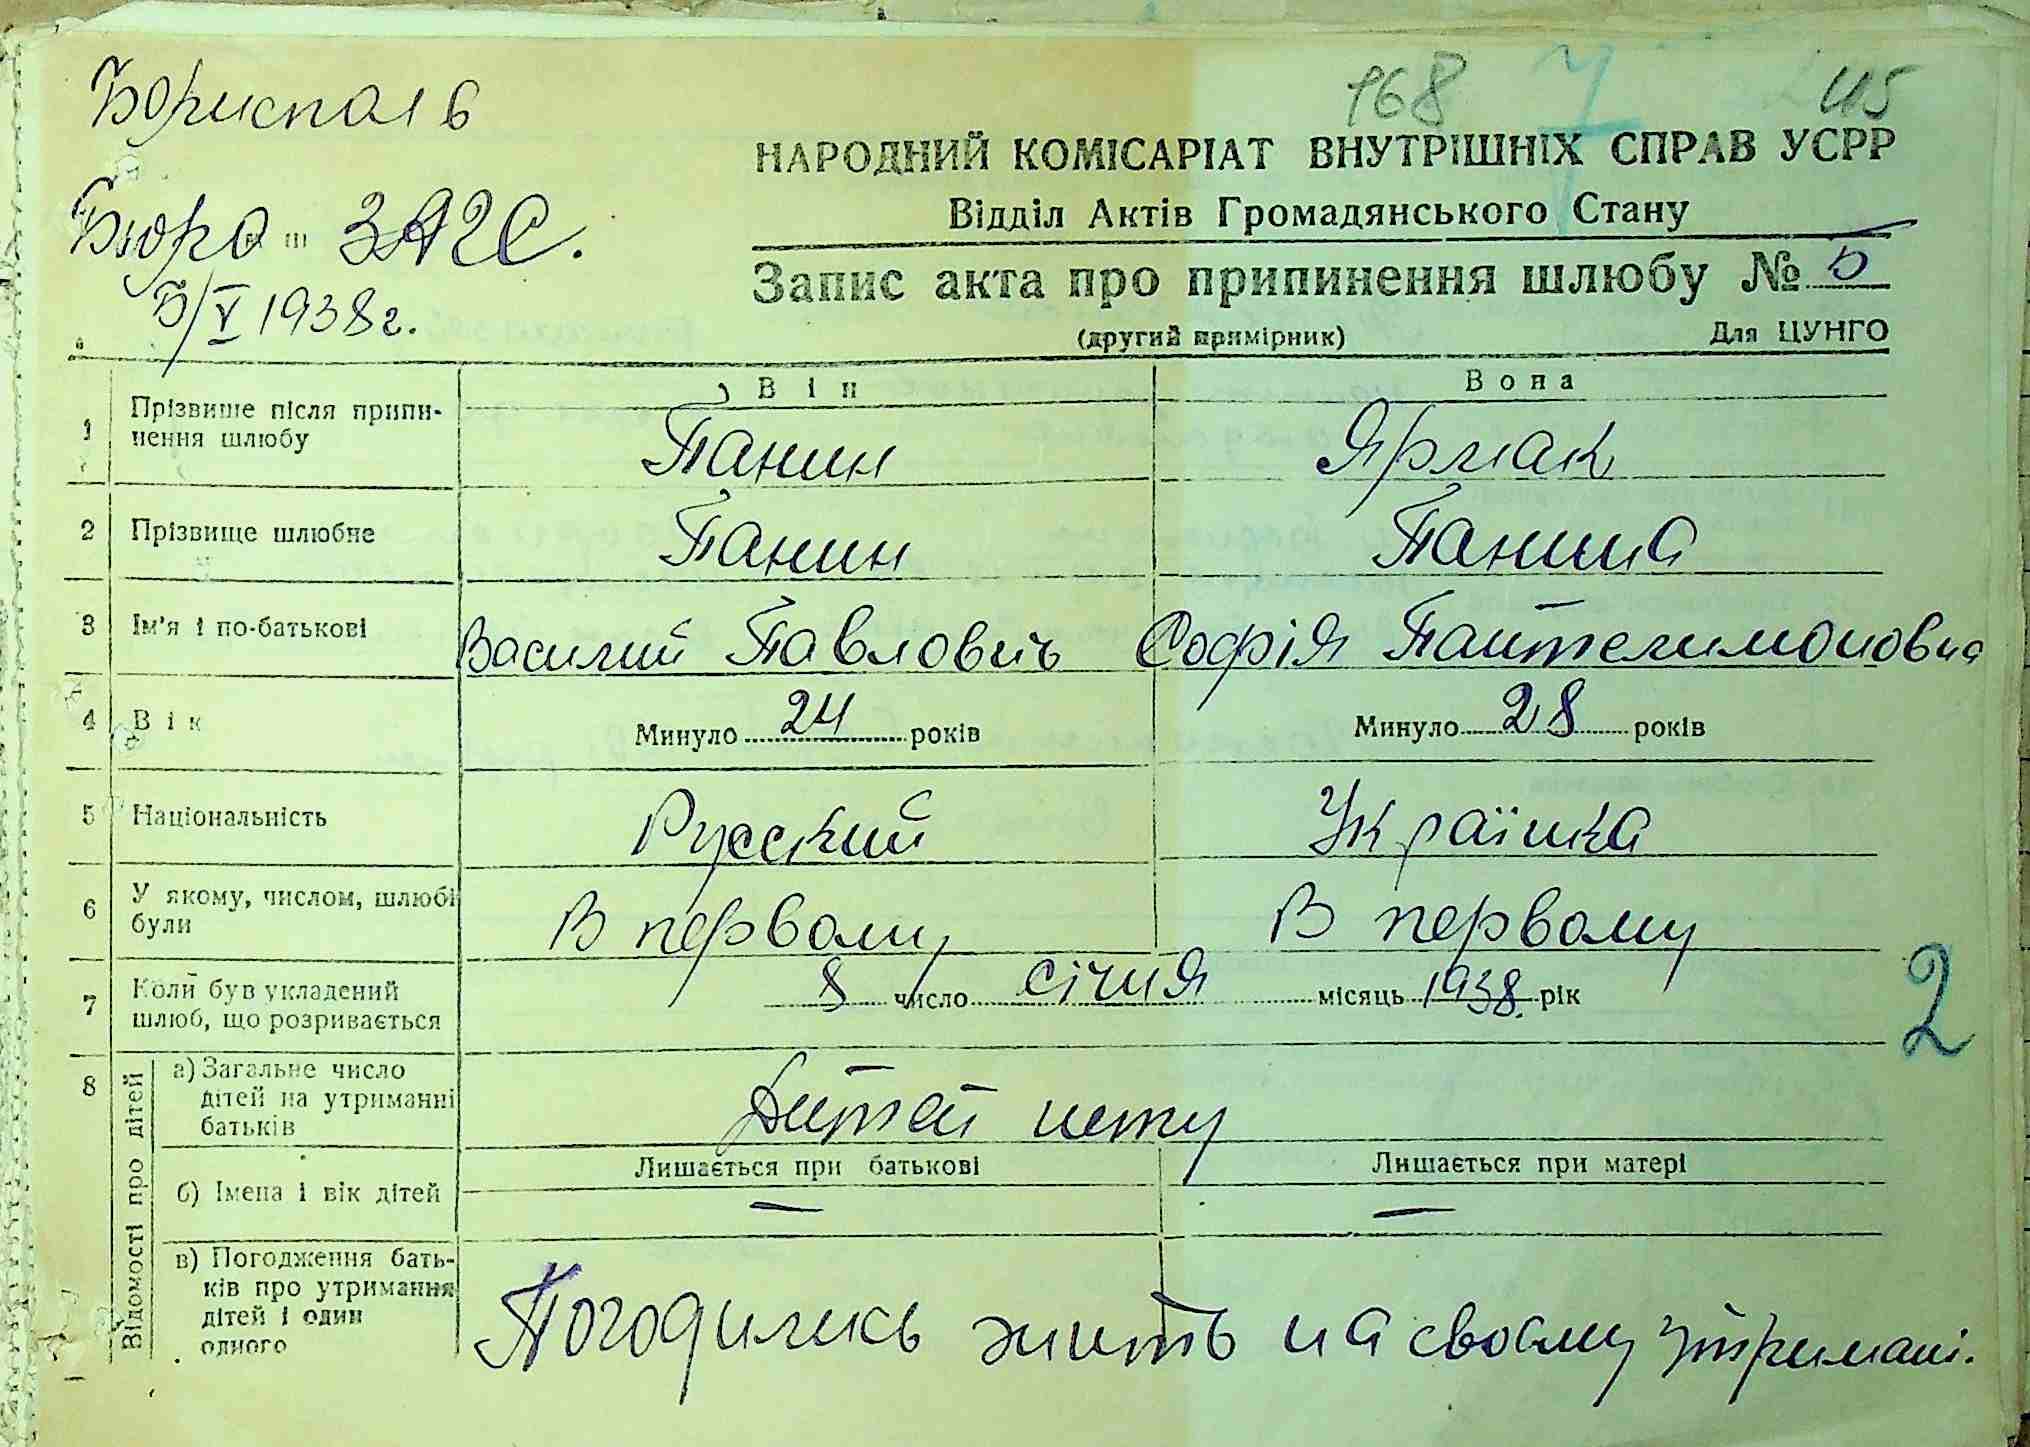 168 7 245
Борисполь
Бюро ЗАГС.
5/V 1938г.
НАРОДНИЙ КОМІСАРІАТ ВНУТРІШНІХ СПРАВ УСРР
Відділ Актів Громадянського Стану
Запис акта про припинення шлюбу № 5
(другий примірник) Для ЦУНГО
Він Вона
1 Прізвище після припи-
нення шлюбу Панин Ярмак
2 Прізвище шлюбне Панин Панина
3 Ім'я і по-батькові Василий Павлович Софія Пантелимоновна
4 Вік Минуло 24 років Минуло 28 років
5 Національність Русский Українка
6 У якому, числом, шлюбі
були В первому В первому
7 Коли був укладений
шлюб, що розривається 8 число січня місяць 1938. рік
2
8 Відомості про дітей
а) Загальне число
дітей на утриманні
батьків Дитей нету
Лишається при батькові Лишається при матері
б) Імена і вік дітей — —
в) Погодження бать-
ків про утримання
дітей і один
одного Погодились жить на своему утримані.